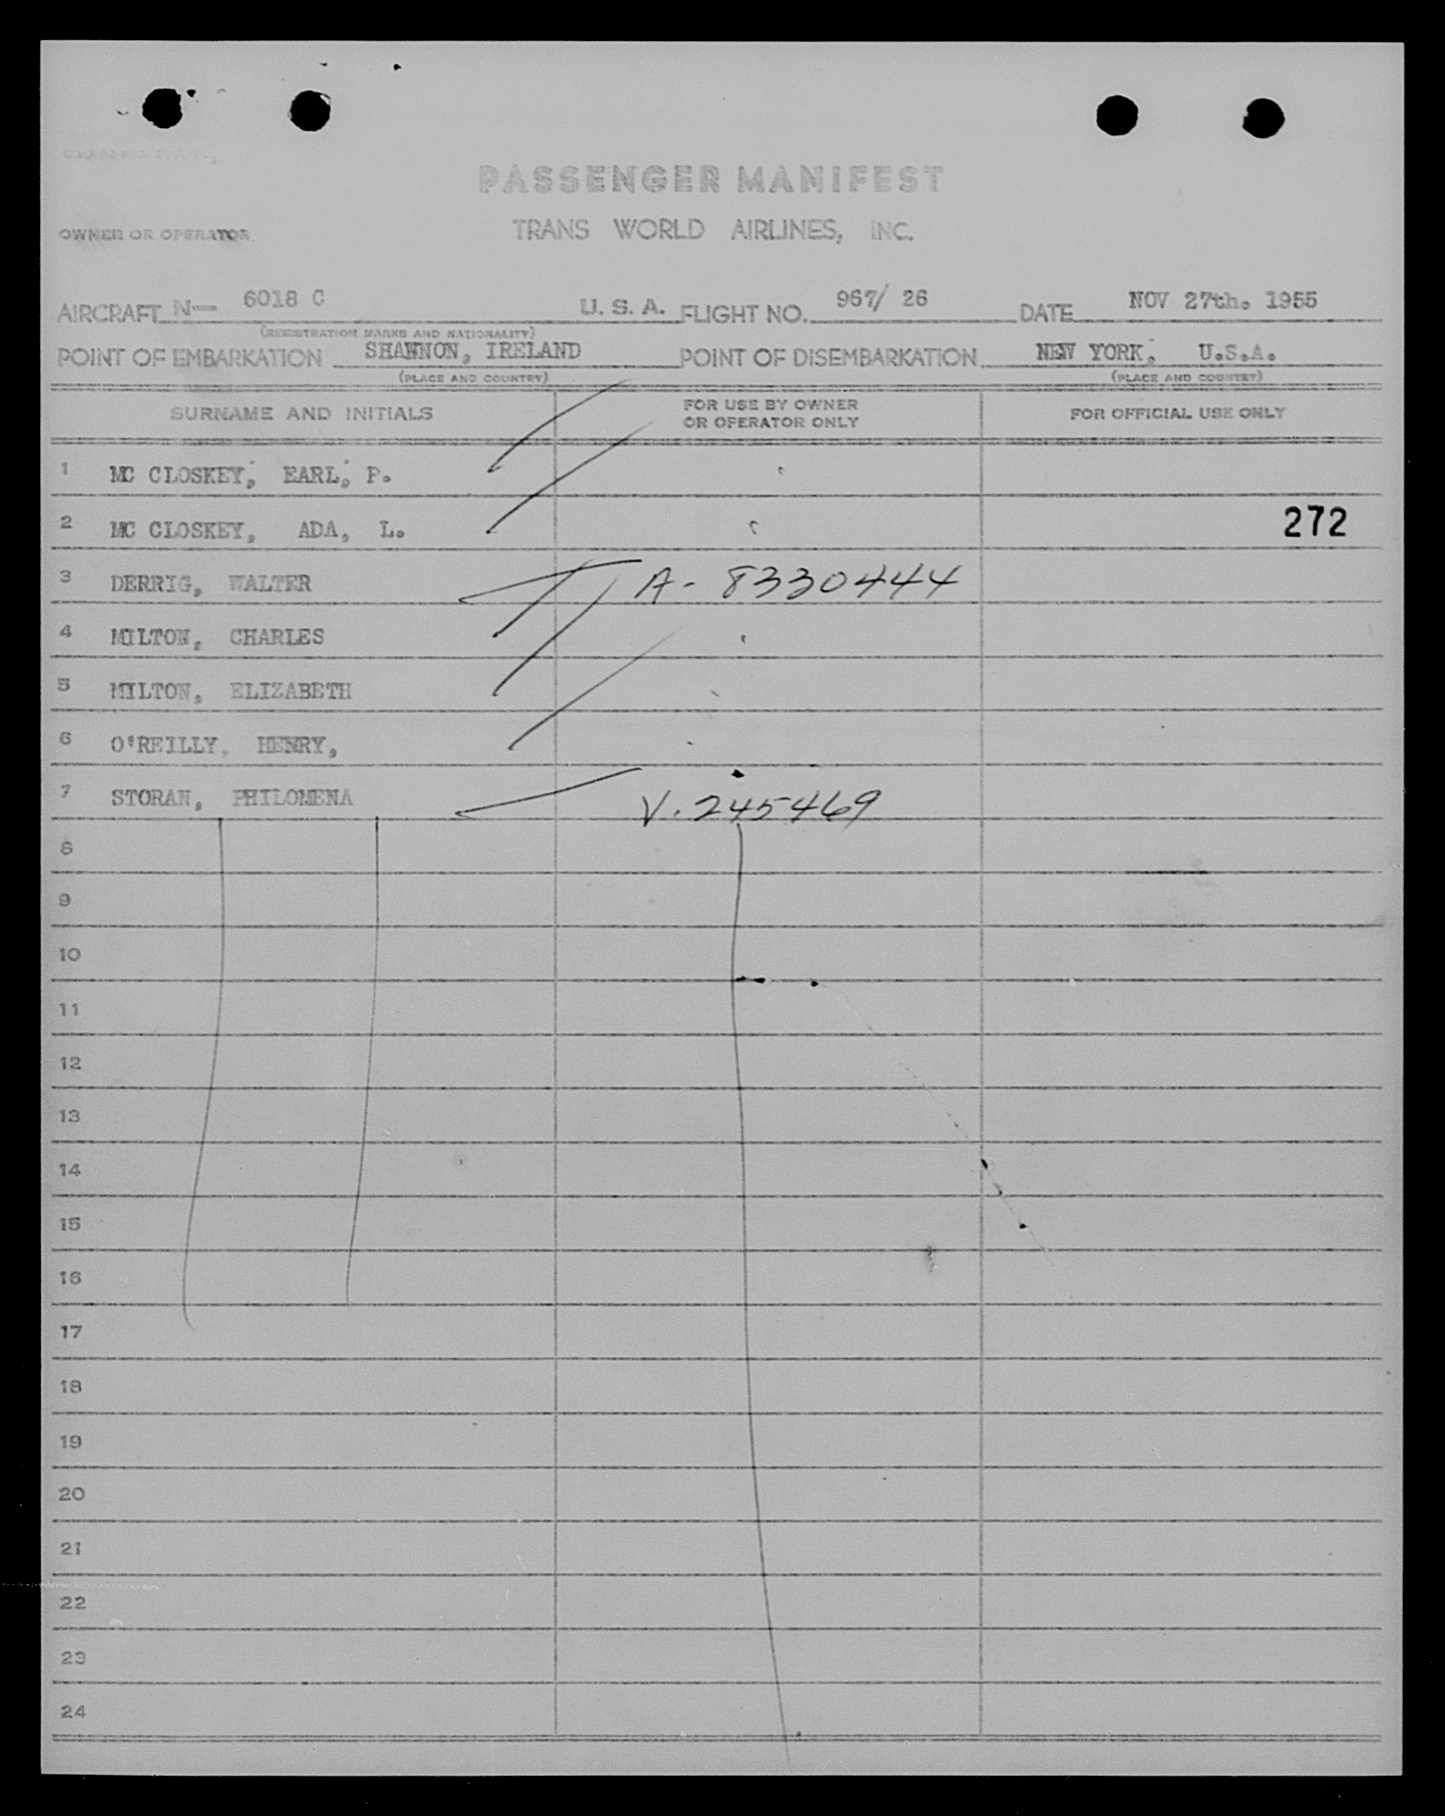 PASSENGER MANIFEST
OWNER OR OPERATOR
TRANS WORLD AIRLINES, INC.
AIRCRAFT N— 6018 C U. S. A. FLIGHT NO. 967/ 26 DATE NOV 27th. 1955
(REGISTRATION MARKS AND NATIONALITY)
POINT OF EMBARKATION SHANNON, IRELAND POINT OF DISEMBARKATION NEW YORK, U.S.A.
(PLACE AND COUNTRY) (PLACE AND COUNTRY)
SURNAME AND INITIALS FOR USE BY OWNER OR OPERATOR ONLY FOR OFFICIAL USE ONLY
1 MC CLOSKEY, EARL, P.
2 MC CLOSKEY, ADA, L. 272
3 DERRIG, WALTER A- 8330444
4 MILTON, CHARLES
5 MILTON, ELIZABETH
6 O'REILLY, HENRY,
7 STORAN, PHILOMENA V. 245469
8
9
10
11
12
13
14
15
16
17
18
19
20
21
22
23
24